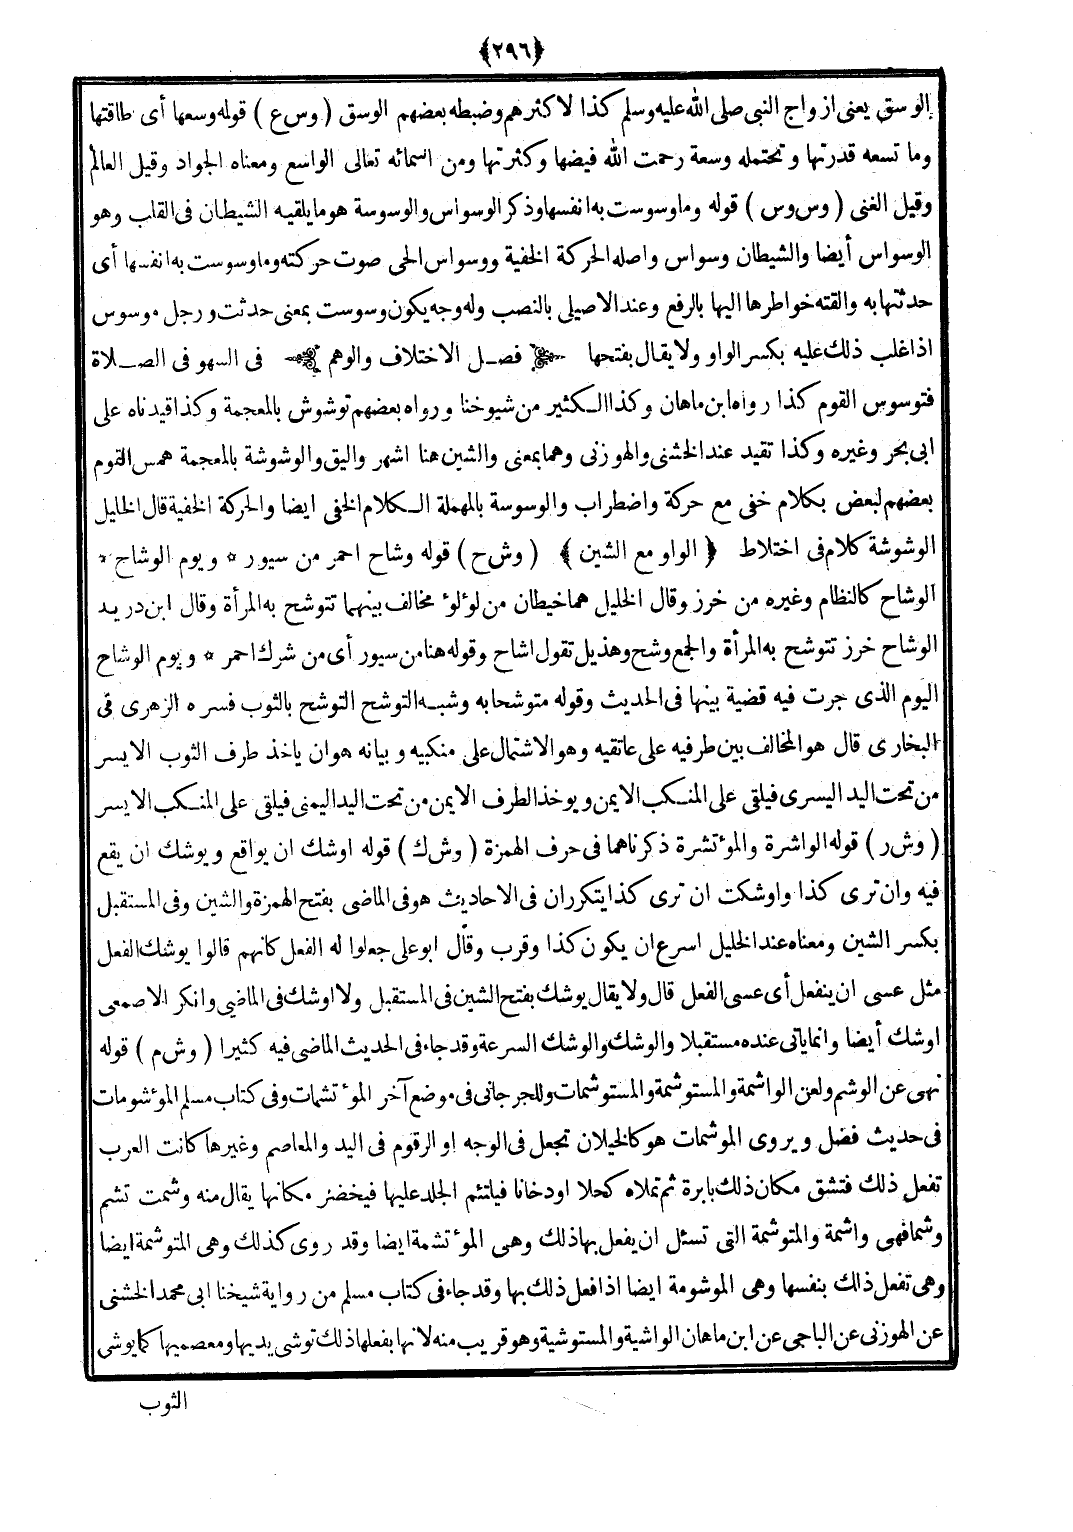 ﴿٢٩٦﴾
الوسق يعنى ازواج النبى صلى الله عليه وسلم كذا لاكثرهم وضبطه بعضهم الوسق ( وس ع ) قوله وسعها أى طاقتها
وما تسعه قدرتها وتحتمله وسعة رحمت الله فيضها وكثرتها ومن اسمائه تعالى الواسع ومعناه الجواد وقيل العالم
وقيل الغنى ( وس وس ) قوله وما وسوست به انفسها وذكر الوسواس والوسوسة هو ما يلقيه الشيطان فى القلب وهو
الوسواس أيضا والشيطان وسواس واصله الحركة الخفية ووسواس الحى صوت حركته وما وسوست به انفسها أى
حدثتها به والقته خواطرها اليها بالرفع وعند الاصيلى بالنصب وله وجه يكون وسوست بمعنى حدثت ورجل موسوس
اذا غلب ذلك عليه بكسر الواو ولا يقال بفتحها فصل الاختلاف والوهم فى السهو فى الصلاة
فتوسوس القوم كذا رواه ابن ماهان وكذا الكثير من شيوخنا ورواه بعضهم توشوش بالمعجمة وكذا قيدناه على
ابى بحر وغيره وكذا تقيد عند الخشنى والهوزنى وهما بمعنى والشين هنا اشهر واليق والوشوشة بالمعجمة همس القوم
بعضهم لبعض بكلام خفى مع حركة واضطراب والوسوسة بالمهملة الكلام الخفى ايضا والحركة الخفية قال الخليل
الوشوشة كلام فى اختلاط ﴿ الواو مع الشين ﴾ ( وش ح ) قوله وشاح احمر من سيور * ويوم الوشاح *
الوشاح كالنظام وغيره من خرز وقال الخليل هما خيطان من لؤلؤ مخالف بينهما تتوشح به المرأة وقال ابن دريد
الوشاح خرز تتوشح به المرأة والجمع وشح وهذيل تقول اشاح وقوله هنا من سيور أى من شرك احمر * ويوم الوشاح
اليوم الذى جرت فيه قضية بينها فى الحديث وقوله متوشحا به وشبه التوشح التوشح بالثوب فسره الزهرى فى
البخارى قال هو المخالف بين طرفيه على عاتقيه وهو الاشتمال على منكبيه وبيانه هو ان ياخذ طرف الثوب الايسر
من تحت اليد اليسرى فيلقى على المنكب الايمن ويوخذ الطرف الايمن من تحت اليد اليمنى فيلقى على المنكب الايسر
( وش ر ) قوله الواشرة والمؤتشرة ذكرناهما فى حرف الهمزة ( وش ك ) قوله اوشك ان يواقع ويوشك ان يقع
فيه وان ترى كذا واوشكت ان ترى كذا يتكرران فى الاحاديث هو فى الماضى بفتح الهمزة والشين وفى المستقبل
بكسر الشين ومعناه عند الخليل اسرع ان يكون كذا وقرب وقال ابو على جعلوا له الفعل كانهم قالوا يوشك الفعل
مثل عسى ان ينفعل أى عسى الفعل قال ولا يقال يوشك بفتح الشين فى المستقبل ولا اوشك فى الماضى وانكر الاصمعى
اوشك أيضا وانما ياتى عنده مستقبلا والوشك والوشك السرعة وقد جاء فى الحديث الماضى فيه كثيرا ( وش م ) قوله
نهى عن الوشم ولعن الواشمة والمستوشمة والمستوشمات وللجرجانى فى موضع آخر المؤتشمات وفى كتاب مسلم المؤشومات
فى حديث فضل ويروى الموشمات هو كالخيلان تجعل فى الوجه او الرقوم فى اليد والمعاصم وغيرها كانت العرب
تفعل ذلك فتشق مكان ذلك بابرة ثم تملاه كحلا او دخانا فيلتئم الجلد عليها فيخضر مكانها يقال منه وشمت تشم
وشما فهى واشمة والمتوشمة التى تسئل ان يفعل بها ذلك وهى المؤتشمة ايضا وقد روى كذلك وهى المتوشمة ايضا
وهى تفعل ذلك بنفسها وهى الموشومة ايضا اذا فعل ذلك بها وقد جاء فى كتاب مسلم من رواية شيخنا ابى محمد الخشنى
عن الهوزنى عن الباجى عن ابن ماهان الواشية والمستوشية وهو قريب منه لانها بفعلها ذلك توشى يديها ومعصميها كما يوشى
الثوب